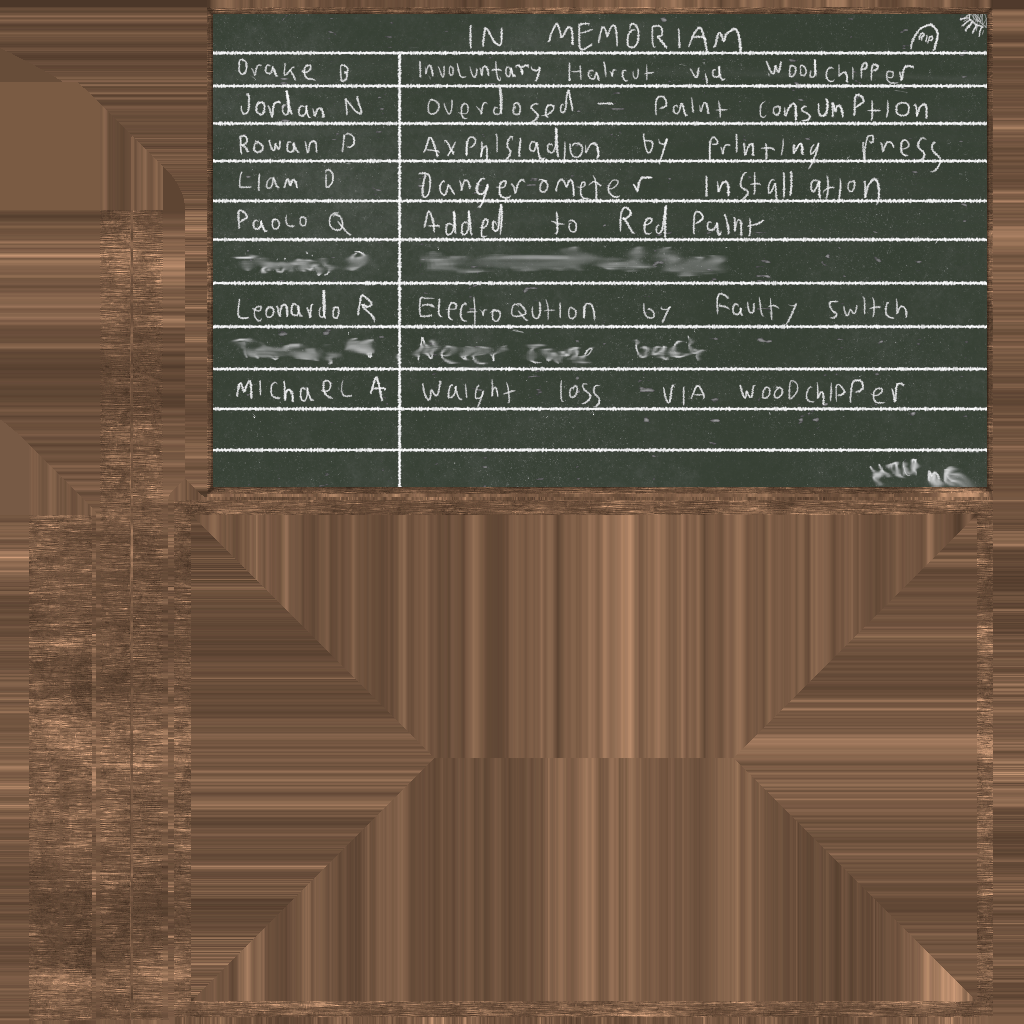 IN MEMORIAM
RIP
Drake B Involuntary Haircut via Woodchipper
Jordan N Overdosed - Paint consumption
Rowan D Axphisiadion by Printing Press
Liam D Danger-ometer Installation
Paolo Q Added to Red Paint
Leonardo R Electroqution by Faulty switch
Never Came back
Michael A Waight loss - VIA - WOODchipper